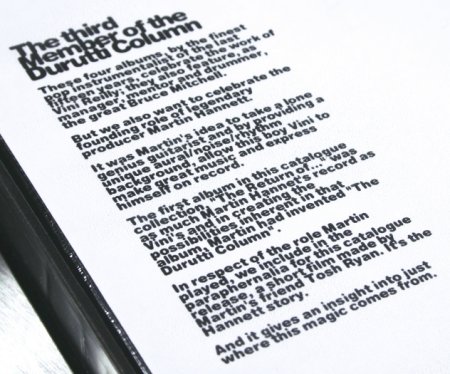 The third
Member of the
Durutti Column
These four albums, by the finest
pop instrumentalist of the last
fifteen years, celebrate the work of
Vini Reilly; they also feature, as
manager, mentor and drummer,
the great Bruce Mitchell.
But we also want to celebrate the
founding role of legendary
producer Martin Hannett.
It was Martin's idea to take a lone
genius guitarist and by providing a
unique aural/noise/rhythm
background, allow this boy Vini to
make great music and express
himself on record.
The first album in this catalogue
collection "The Return of..." was
as much Martin Hannett's record as
Vini's and in creating the
possibilities inherent in that
album, Martin had invented "The
Durutti Column".
In respect of the role Martin
played, we include in the
paraphernalia for this catalogue
release, a short film made by
Martin's friend Tosh Ryan. It's the
Hannett story.
And it gives an insight into just
where this magic comes from.